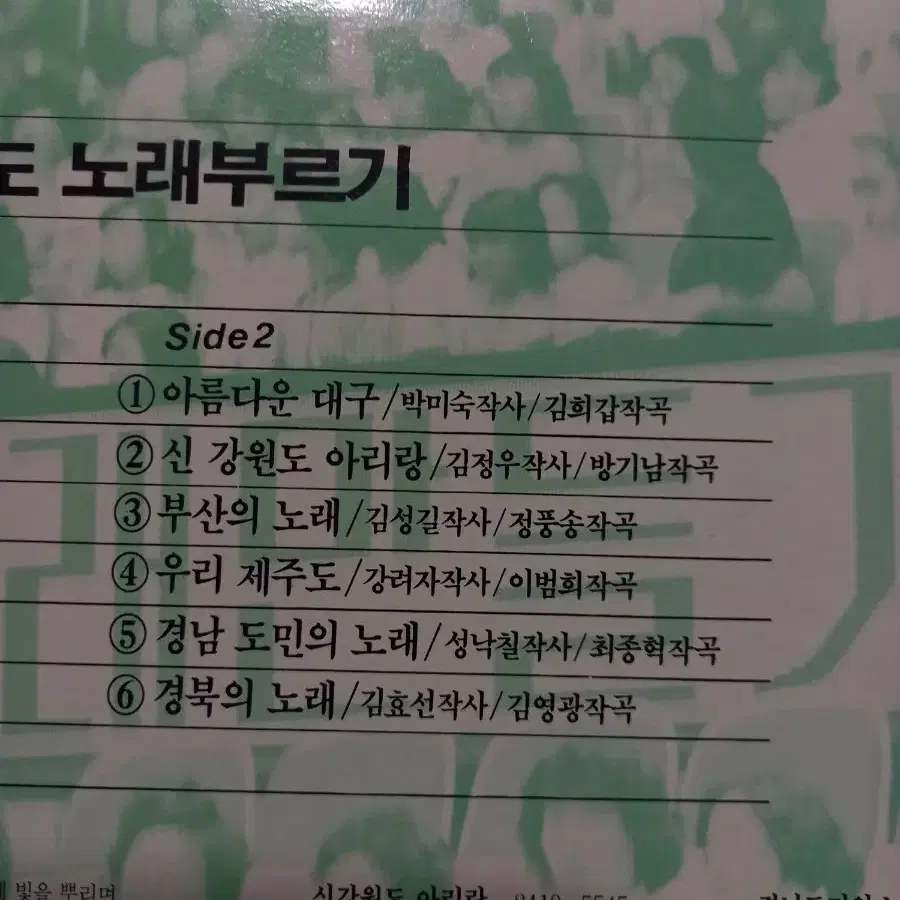 노래부르기
Side 2
① 아름다운 대구/박미숙작사/김희갑작곡
② 신 강원도 아리랑/김정우작사/방기남작곡
③ 부산의 노래/김성길작사/정풍송작곡
④ 우리 제주도/강려자작사/이범희작곡
⑤ 경남 도민의 노래/성낙칠작사/최종혁작곡
⑥ 경북의 노래/김효선작사/김영광작곡
빛을 뿌리며 신강원도 아리랑